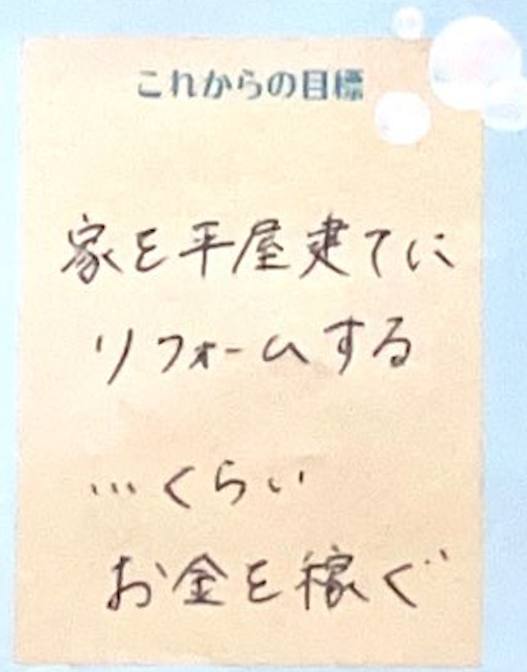 これからの目標
家を平屋建てに
リフォームする
…くらい
お金を稼ぐ